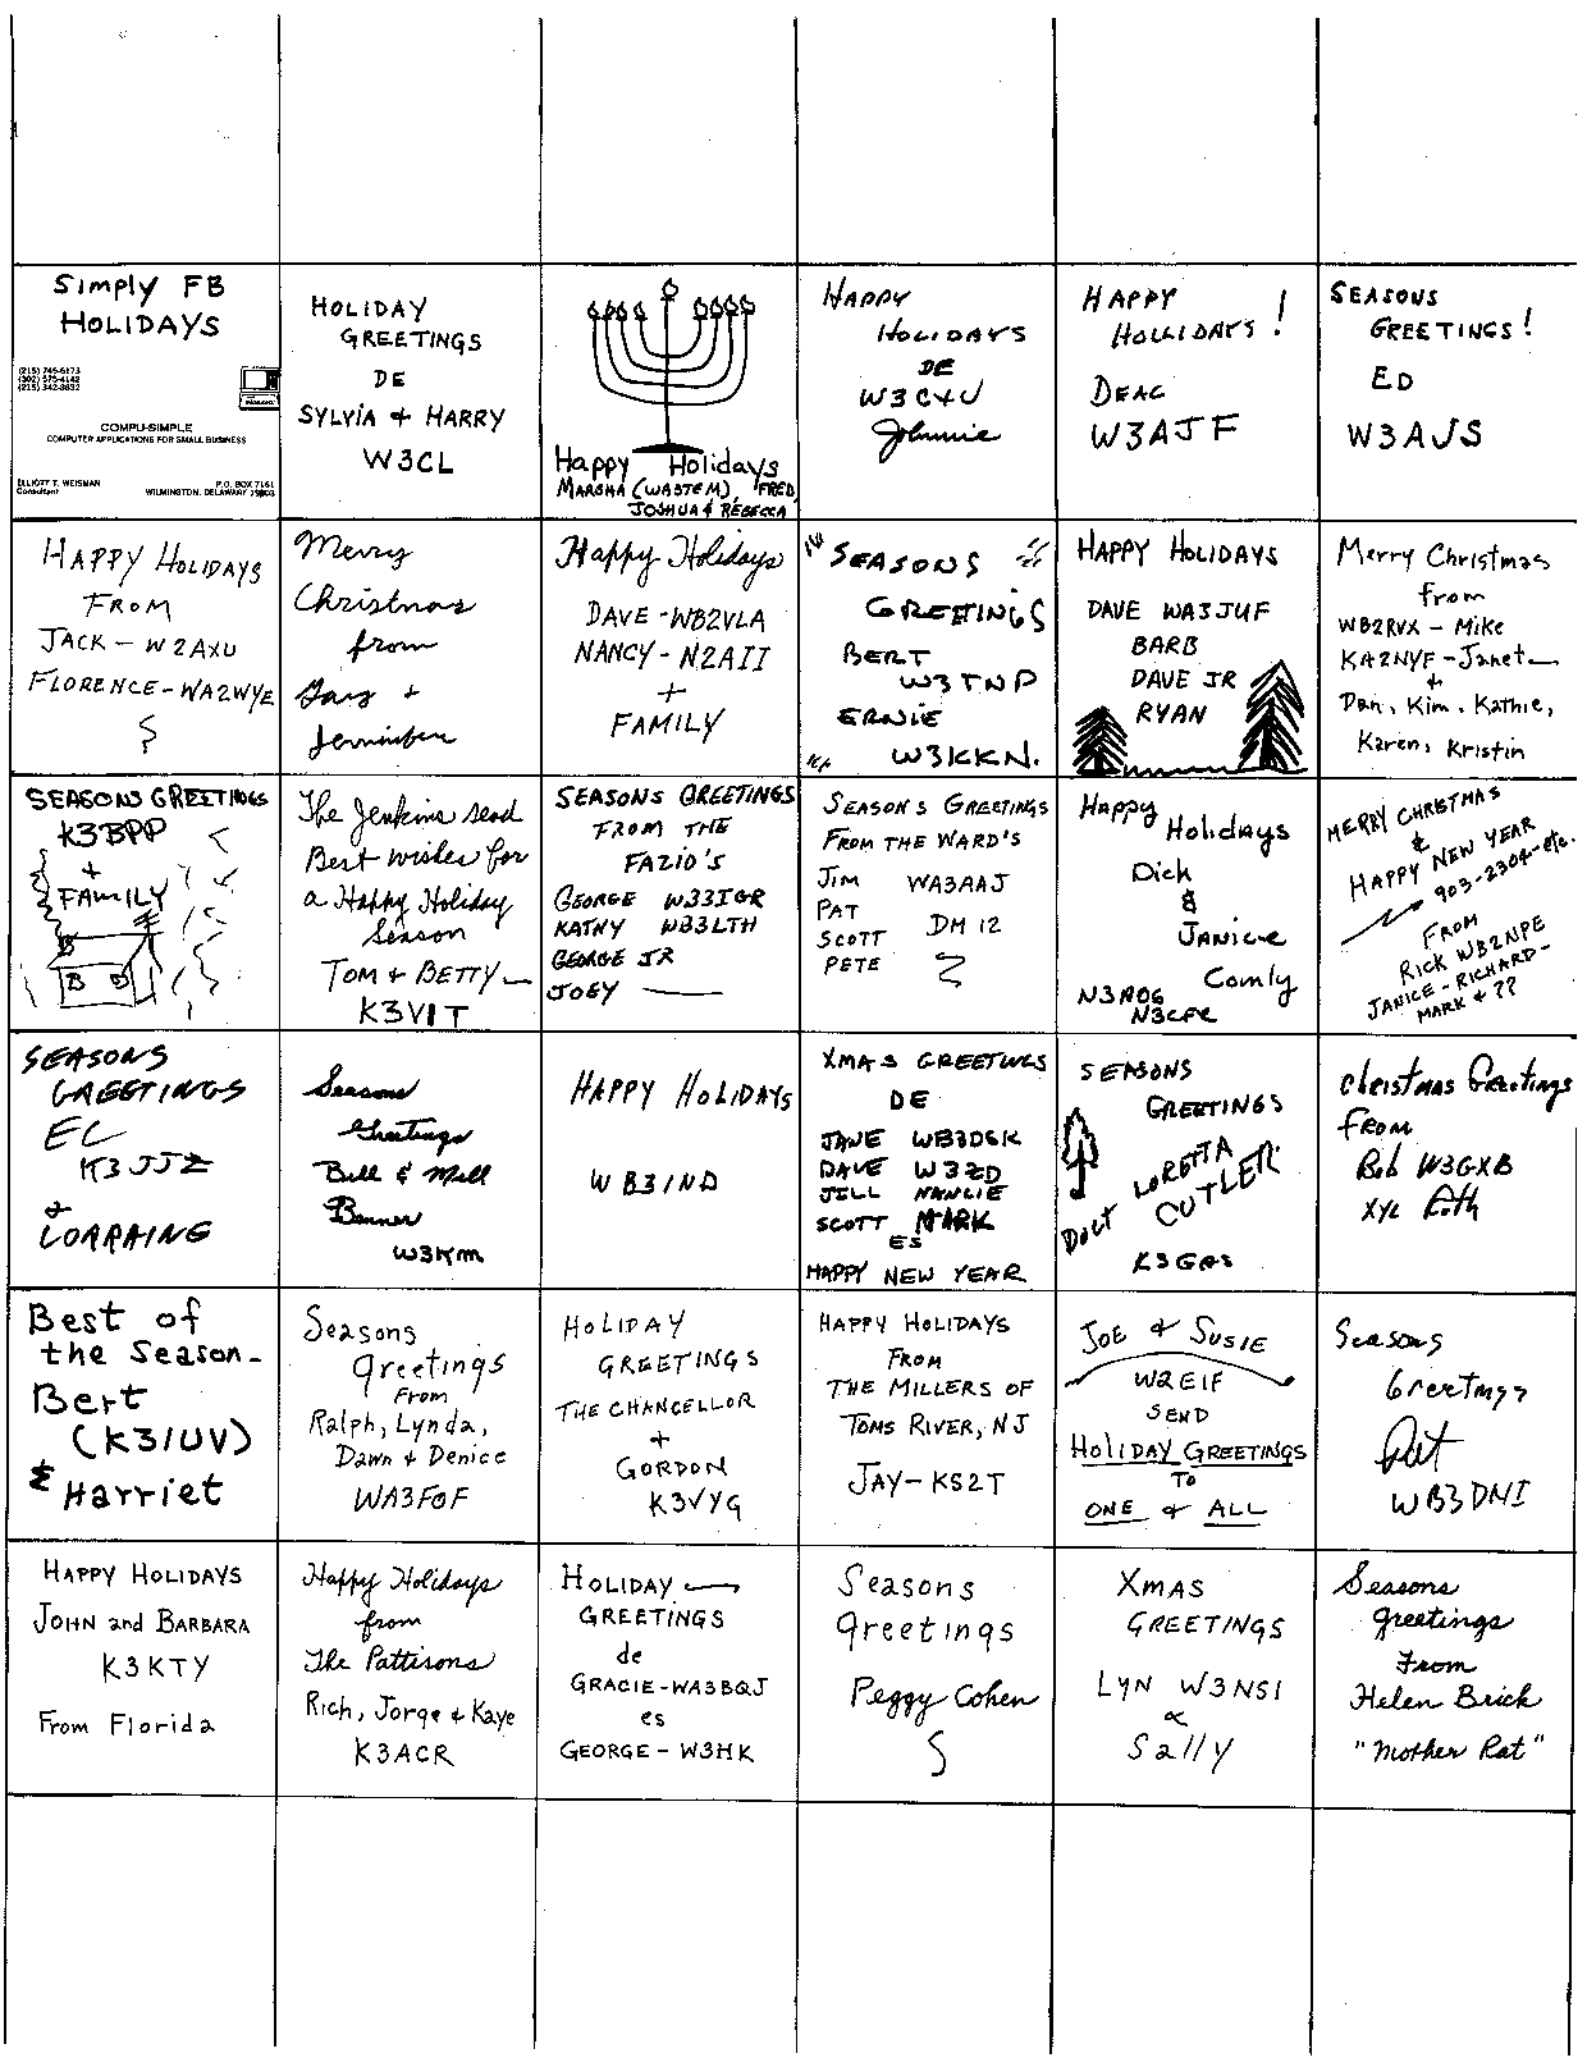 Simply FB
HOLIDAYS
(215) 746-6173
(302) 575-4142
(215) 342-3832
COMPU-SIMPLE
COMPUTER APPLICATIONS FOR SMALL BUSINESS
ELLIOTT T. WEISMAN
Consultant
P.O. BOX 7161
WILMINGTON, DELAWARE 19803
HOLIDAY
GREETINGS
DE
SYLVIA + HARRY
W3CL
Happy Holidays
MARSHA (WA3TEM), FRED,
JOSHUA & REBECCA
HAPPY
HOLIDAYS
DE
W3CXU
Johnnie
HAPPY
HOLLIDAYS!
DEAC
W3AJF
SEASONS
GREETINGS!
ED
W3AJS
HAPPY HOLIDAYS
FROM
JACK - W2AXU
FLORENCE - WA2WYE
Merry
Christmas
from
Gary +
Jennifer
Happy Holidays
DAVE - WB2VLA
NANCY - N2AII
+
FAMILY
SEASONS
GREETINGS
BERT
W3TNP
ERNIE
W3KKN.
HAPPY HOLIDAYS
DAVE WA3JUF
BARB
DAVE JR
RYAN
Merry Christmas
from
WB2RVX - Mike
KA2NYF - Janet
+
Dan, Kim, Kathie,
Karen, Kristin
SEASONS GREETINGS
K3BPP
+
FAMILY
B
B B
The Jenkins send
Best wishes for
a Happy Holiday
Season
TOM + BETTY
K3VIT
SEASONS GREETINGS
FROM THE
FAZIO'S
GEORGE WB3IGR
KATHY WB3LTH
GEORGE JR
JOEY
SEASON'S GREETINGS
FROM THE WARD'S
JIM WA3AAJ
PAT
SCOTT DM 12
PETE
Happy
Holidays
Dick
&
JANICE
Comly
N3AOG
N3CFR
MERRY CHRISTMAS
&
HAPPY NEW YEAR
903-2304-etc.
FROM
RICK WB2NPE
JANICE - RICHARD -
MARK & ??
SEASONS
GREETINGS
EL
K3JJZ
+
LORRAINE
Seasons
Greetings
Bill & Mell
Banner
W3KM
HAPPY HOLIDAYS
WB3IND
XMAS GREETINGS
DE
JANE WB3DSK
DAVE W3ZD
JILL NANCIE
SCOTT MARK
ES
HAPPY NEW YEAR
SEASONS
GREETINGS
LORETTA
CUTLER
K3GAS
Christmas Greetings
FROM
Bob W3GXB
XYL Ruth
Best of
the Season-
Bert
(K3IUV)
& Harriet
Seasons
greetings
From
Ralph, Lynda,
Dawn + Denice
WA3FOF
HOLIDAY
GREETINGS
THE CHANCELLOR
+
GORDON
K3VYG
HAPPY HOLIDAYS
FROM
THE MILLERS OF
TOMS RIVER, NJ
JAY - KS2T
JOE & SUSIE
W2EIF
SEND
HOLIDAY GREETINGS
TO
ONE & ALL
Seasons
Greetings
Pat
WB3DNI
HAPPY HOLIDAYS
JOHN and BARBARA
K3KTY
From Florida
Happy Holidays
from
The Pattisons
Rich, Jorge & Kaye
K3ACR
HOLIDAY
GREETINGS
de
GRACIE - WA3BQJ
es
GEORGE - W3HK
Seasons
greetings
Peggy Cohen
XMAS
GREETINGS
LYN W3NSI
&
Sally
Seasons
greetings
From
Helen Brick
"Mother Rat"